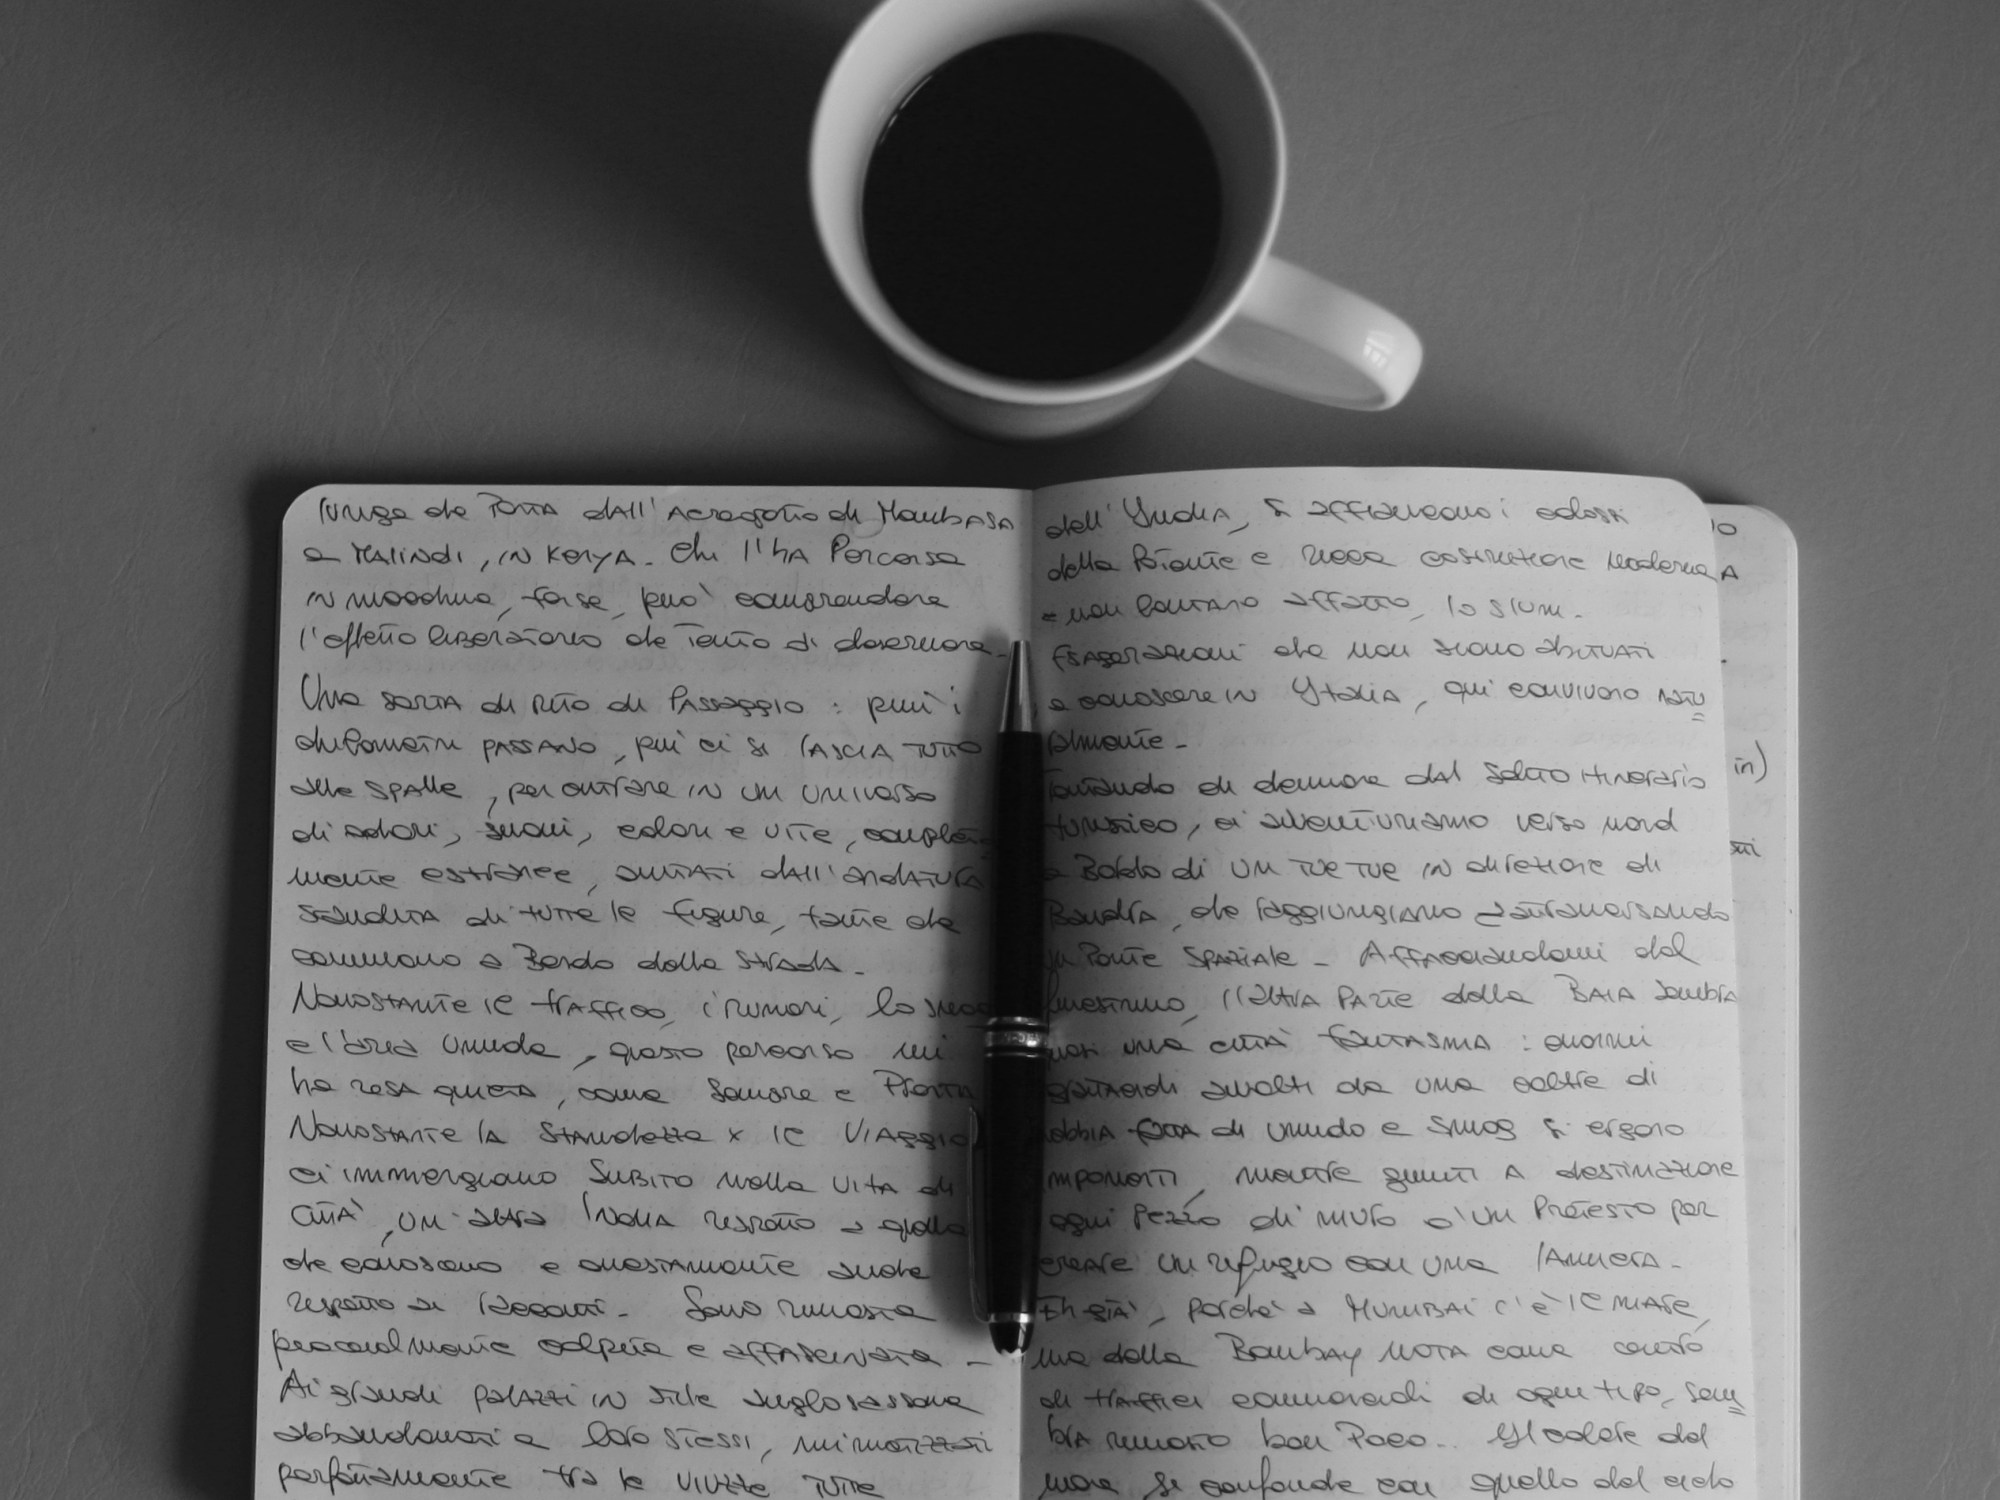 lunga che porta dall'aeroporto di Mombasa
a Malindi, in Kenya. Chi l'ha percorsa
in macchina, forse, può comprendere
l'effetto liberatorio che tento di descrivere.
Una sorta di rito di passaggio: più i
chilometri passano, più ci si lascia tutto
alle spalle, per entrare in un universo
di odori, suoni, colori e vite, completa-
mente estranee, cullati dall'andatura
standita di tutte le figure, tante che
camminano a bordo della strada.
Nonostante il traffico, i rumori, lo smog
e l'aria umida, questo percorso mi
ha resa quieta, come sempre e pronta
Nonostante la stanchezza x il viaggio
ci immergiamo subito nella vita di
città, un'altra India rispetto a quella
che conosciamo e onestamente anche
rispetto ai racconti. Sono rimasta
piacevolmente colpita e affascinata.
Ai grandi palazzi in stile anglosassone
abbandonati a loro stessi, mimetizzati
perfettamente tra le viuzze tutte
dell'India, si affiancano i colossi
della potente e ricca costruzione moderna
e non lontano affatto, lo slum.
Esagerazioni che non siamo abituati
a conoscere in Italia, qui convivono natu
ralmente.
Tentando di deviare dal solito itinerario
turistico, ci avventuriamo verso nord
a bordo di un tuc tuc in direzione di
Bandra, che raggiungiamo attraversando
un ponte spaziale. Affacciandomi dal
finestrino, l'altra parte della baia sembra
quasi una città fantasma: enormi
grattacieli avvolti da una coltre di
nebbia fatta di umido e smog si ergono
imponenti, mentre giunti a destinazione
ogni pezzo di muro è un pretesto per
creare un rifugio con una lamiera.
Eh già, perché a Mumbai c'è il mare,
ma della Bombay nota come centro
di traffici commerciali di ogni tipo, sem
bra rimasto ben poco. Il colore del
mare si confonde con quello del cielo
in)